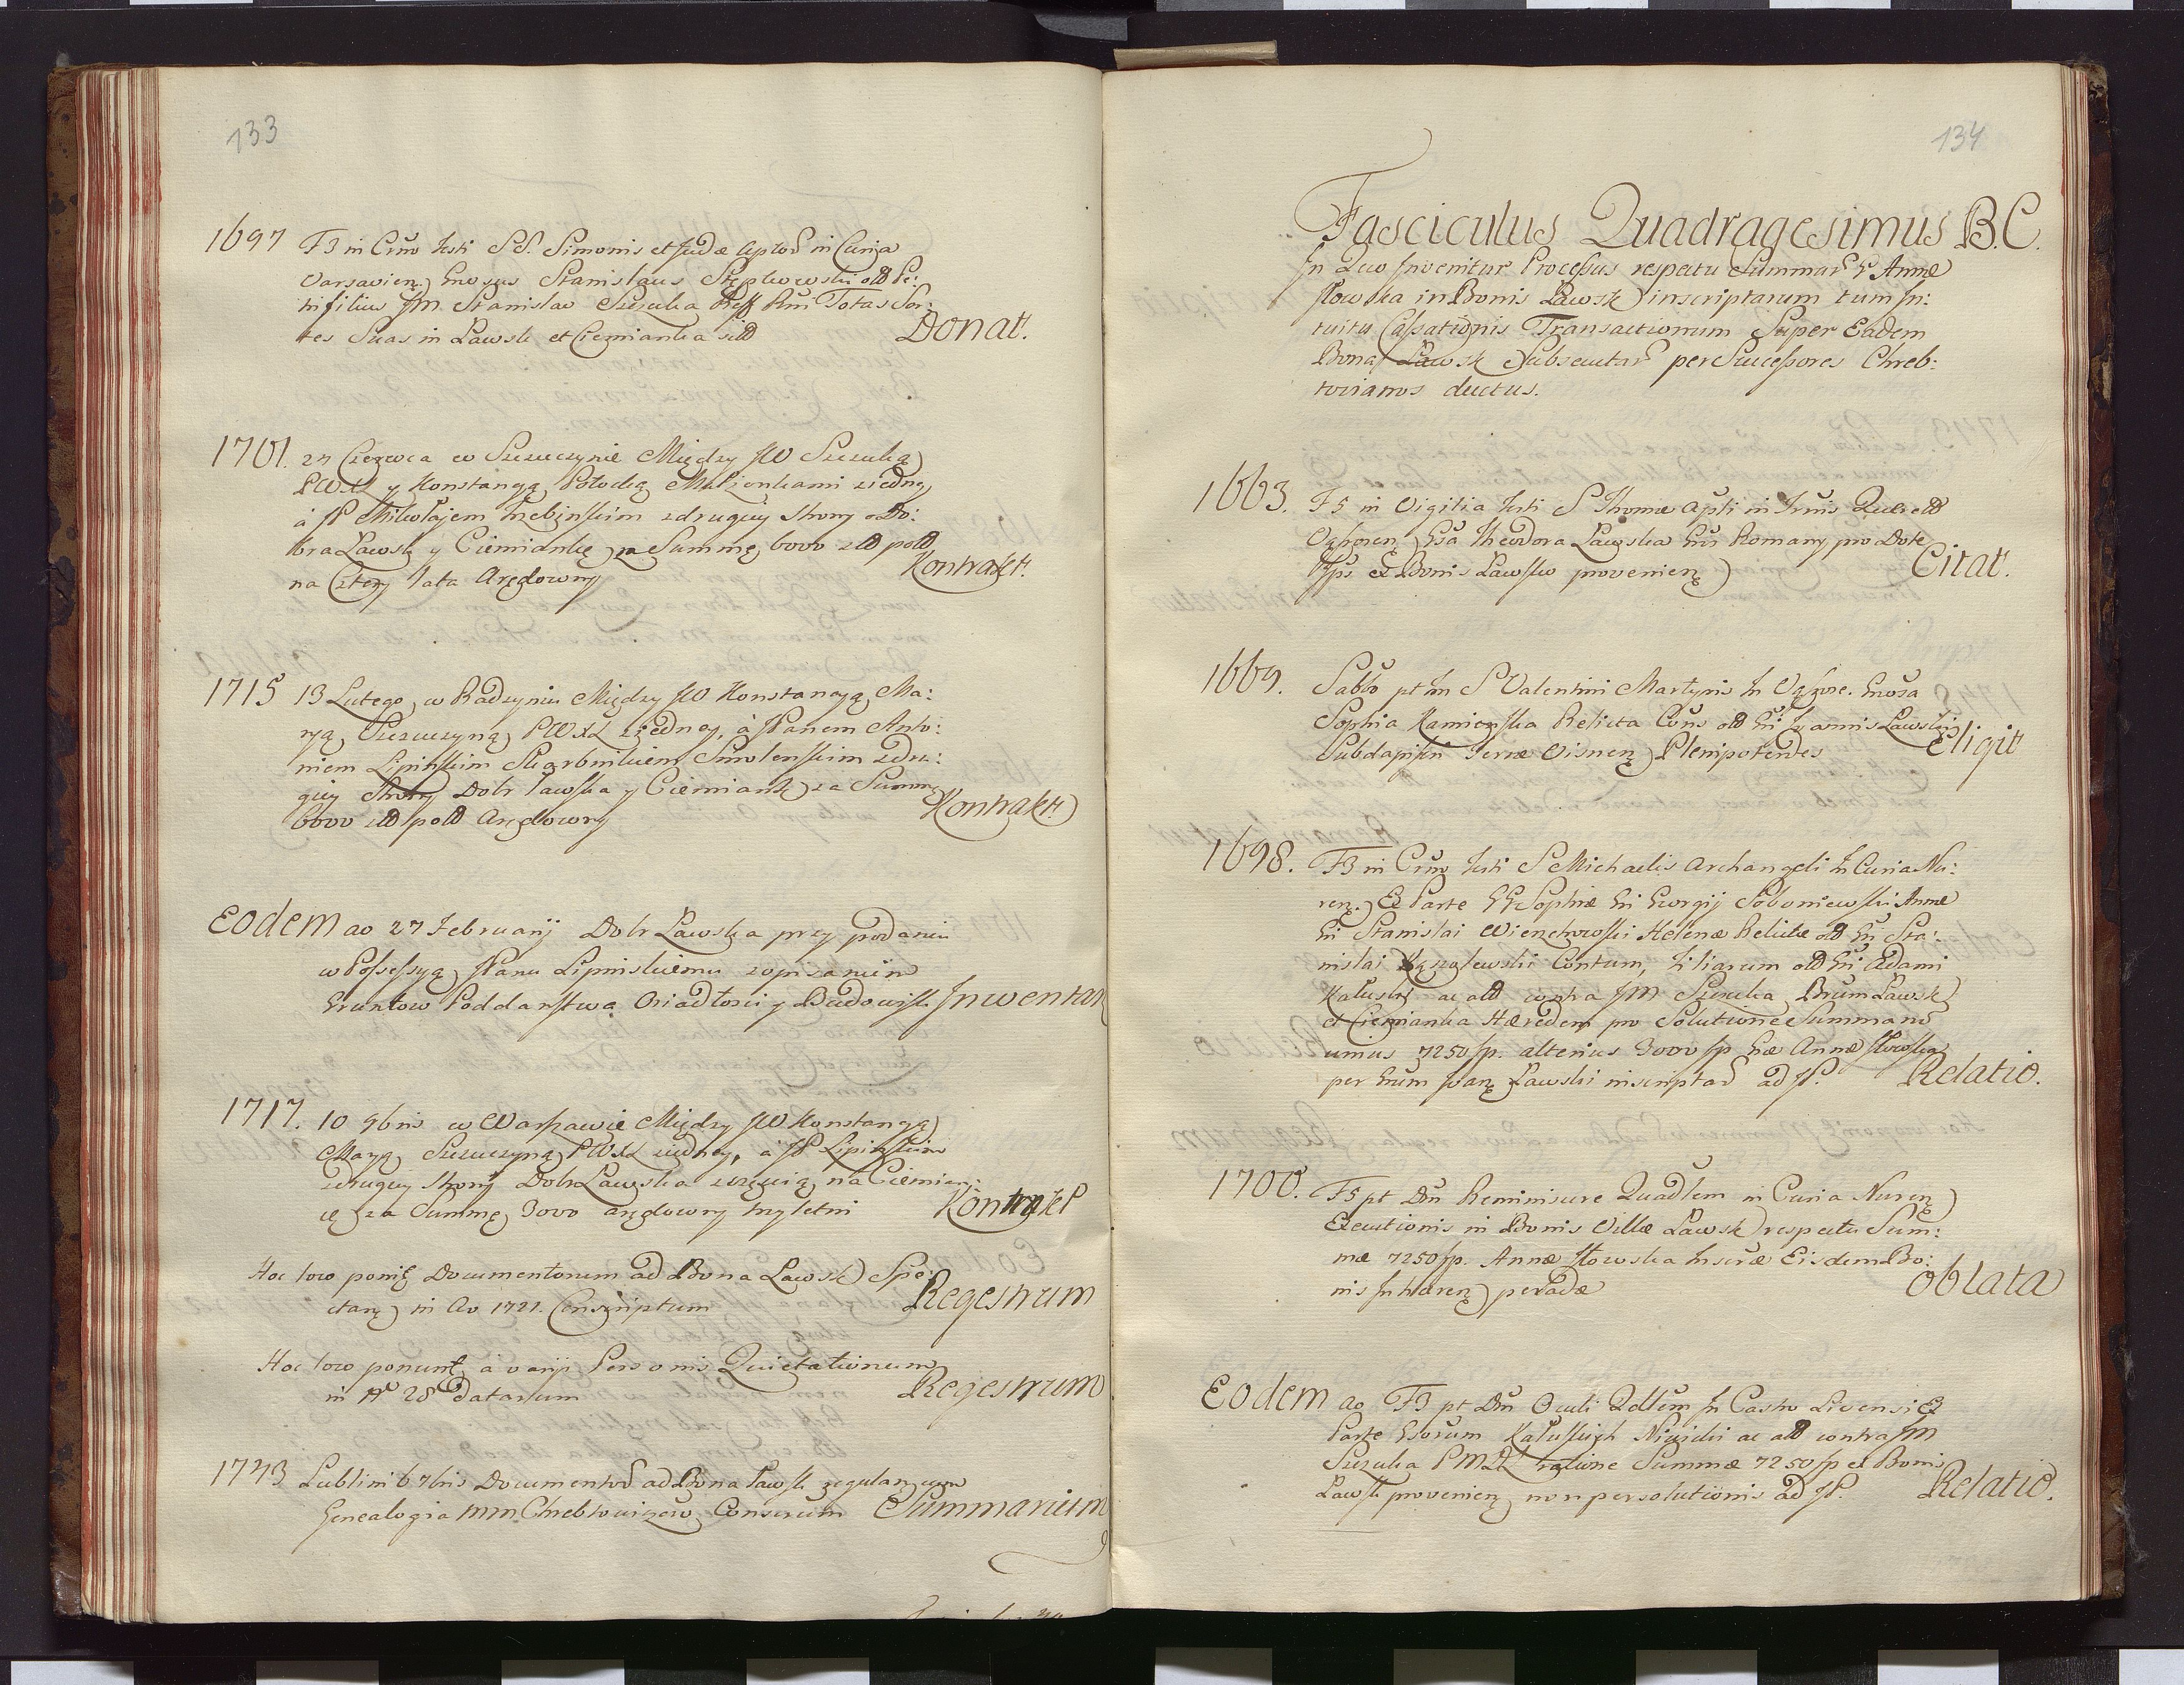 133
1697 F3 in Crno festi SS. Simonis et Judæ Aptor in Curia
Varsavien Gnosus Stanislaus
nifilius JM Stanislao Szczuka Totas Sor:
tes Suas in Lawsk et Ciemianka
Donat.
1701. 27 Czerwca w Szczuczynie Między JW Szczuką
PWXL y Konstancyą Potocką Małżonkami z iedney
á JP Mikołajem Trebinskim z drugiey strony o Do:
bra Lawsk y Ciemiankę za Summę 6000
na Cztery lata Arędowny
Kontrakt.
1715 13 Lutego w Radzyniu Między JW Konstancyą Ma:
ryą Szczuczyną PWXL z iedney, á JPanem Anto:
niem Lipinskim Skarbnikiem Smolenskim z dru:
giey Strony Dobr Lawska y Ciemiank za Summę
6000 Arędowny
Kontrakt
Eodem ao 27 Februarij Dobr Lawska przy podaniu
w Possessyą JPanu Lipinskiemu z opisaniem
Gruntow Poddanstwa Osiadłosci y Budowisk
Inwentarz
1717. 10 9bris w Warszawie Między JW Konstancyą
Maryą Szczuczyną PWXL z iedney, á JP Lipinskim
z drugiey strony Dobr Lawska na Ciemian:
cę za Summę 3000 arędowny trzyletni
Kontrakt
Hoc loco ponit Documentorum ad Bona Lawsk Spe:
ctan in Ao 1721. Conscriptum
Regestrum
Hoc loco ponunt á varijs Personis Quietationum
in No 28 datarum
Regestrum
1743 Lublini 6 7bris Documentor ad Bona Lawsk regulan cum
Genealogia MM Chrebtowiczow Conscrium
Summarium
134
Fasciculus Quadragesimus B.C.
In Quo Invenitur Processus respectu Summar G Annæ
Jłowska in Bonis Lawsk inscriptarum tum In:
tuitu Cassationis Transactionum Super Eadem
Bona Lawsk Subsecutar per Successores Chreb:
tovianos ductus.
1663. F5 in Vigilia festi S Thomæ Apli in Trnis
Gsa Theodora Lawska Gnis Romany pro Dote
ex Bonis Lawsko provenien
Citat.
1669. Sabbo pt fm S Valentini Martyris In Gnosa
Sophia Kamienska Relicta Cons old Gni Joannis Lawski
Subdapifri Terræ Visnen Plenipotentes
Eligit
1698. F3 in Crno festi S Michaelis Archangeli In Curia Nu:
ren. Ex Parte GG Sophiæ Gni Georgij Soboniewski Annæ
Gni Stanislai Helenæ Relictæ old Gni Sta:
nislai Contum, Filiarum old Gni Adami
contra JM Szczuka Brum Lawsk
et Ciemianka Hæredem pro Solutione Summarum
unius 7250 fp. alterius 3000 fp Gnæ Annæ Jłowska
per Gnum Joan Lawski inscriptar ad JP.
Relatio.
1700. F5 pt Dni Reminiscere Quadlem in Curia Nuren
Executionis in Bonis Villæ Lawsk respectu Sum:
mæ 7250 fp. Annæ Jłowska Inscræ Eisdem Bo:
nis Inhæren peractæ
Oblata
Eodem ao F3 pt Dni Oculi Qdlem In Castro Livensi Ex
Parte Gsorum contra JM
Szczuka ratione Summæ 7250 fp ex Bonis
Lawsk provenien non persolutionis ad JP.
Relatio.